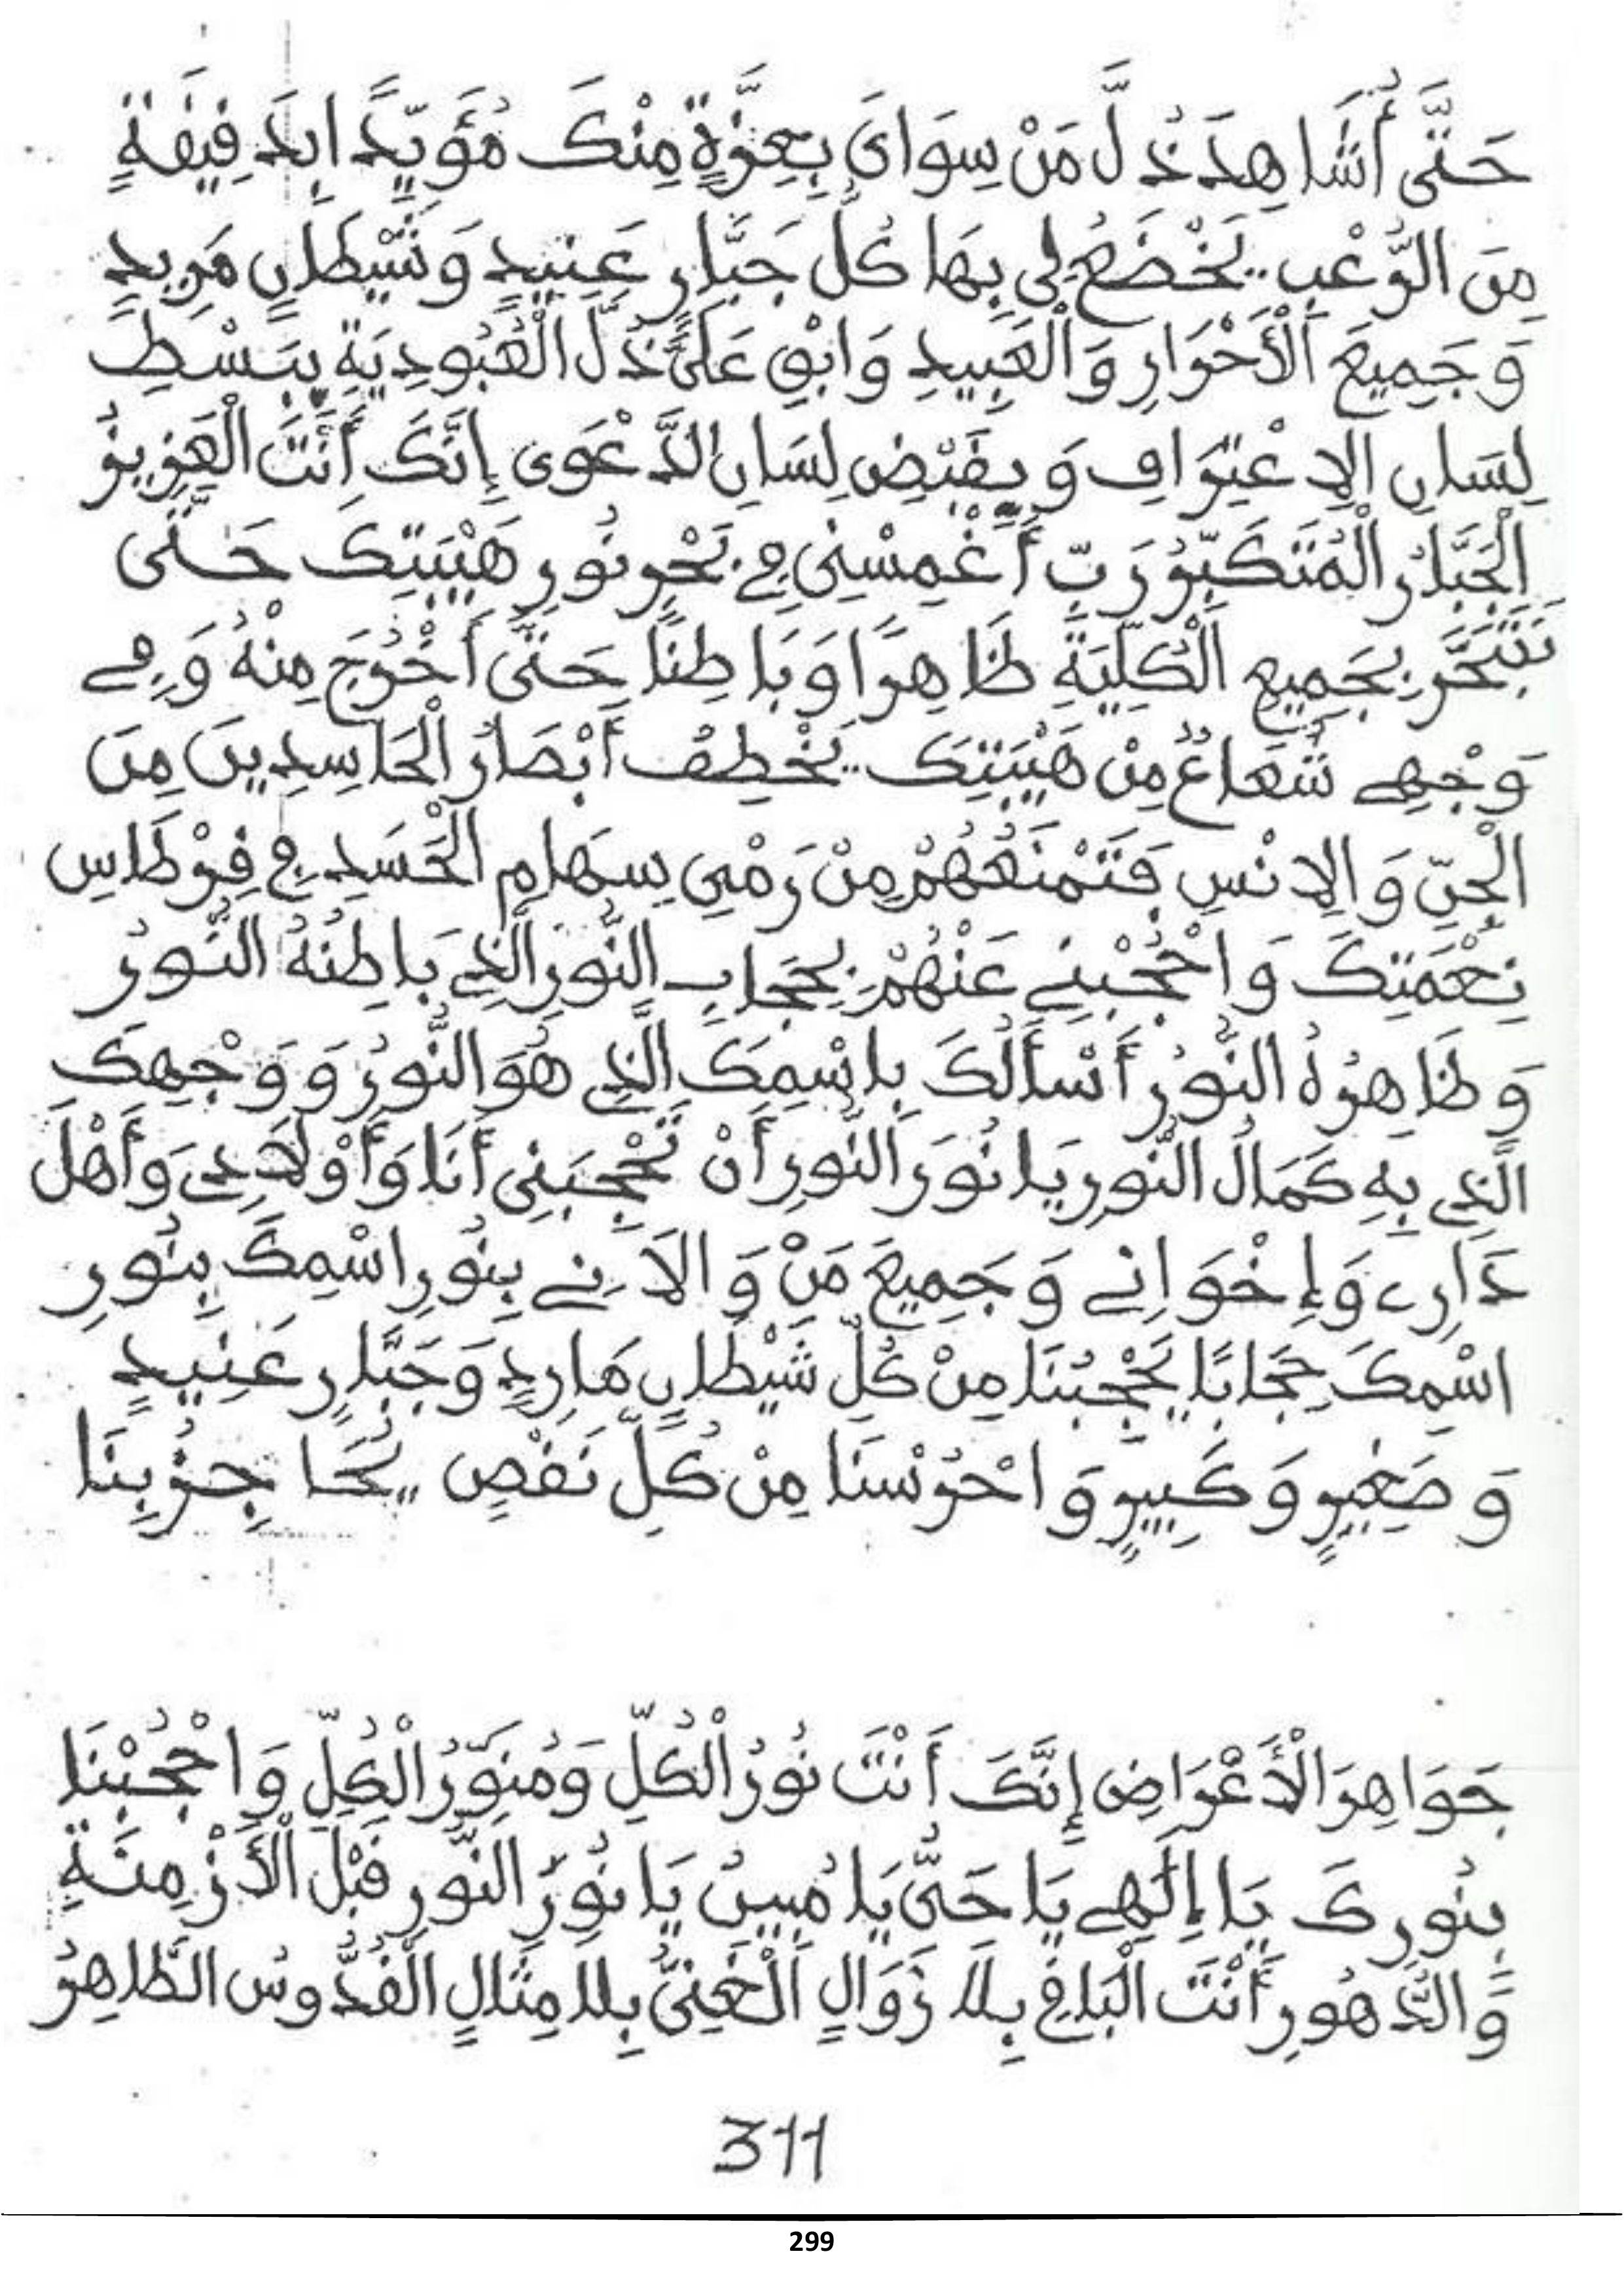 حَتَّى أُشَاهِدَ ذُلَّ مَنْ سِوَاىَ بِعِزَّةٍ مِنْكَ مُؤَيِّدًا بِدَفِيقَةٍ
مِنَ الرُّعْبِ يَخْضَعُ لِى بِهَا كُلُّ جَبَّارٍ عَنِيدٍ وَشَيْطَانٍ مَرِيدٍ
وَجَمِيعَ الْأَحْرَارِ وَالْعَبِيدِ وَابْقِ عَلَىَّ ذُلَّ الْعُبُودِيَةِ بِبَسْطِ
لِسَانِ الاِعْتِرَافِ وَبِقَبْضِ لِسَانِ الدَّعْوَى إِنَّكَ أَنْتَ الْعَزِيزُ
الْجَبَّارُ الْمُتَكَبِّرُ رَبِّ أَغْمِسْنِى فِي بَحْرِ نُورِ هَيْبَتِكَ حَتَّى
بِجَمِيعِ الْكُلِّيَةِ ظَاهِرًا وَبَاطِنًا حَتَّى أَخْرُجَ مِنْهُ وَفِي
وَجْهِي شُعَاعٌ مِنْ هَيْبَتِكَ يَخْطِفُ أَبْصَارُ الْحَاسِدِينَ مِنَ
الْجِنِّ وَالاِنْسِ فَتَمْنَعُهُمْ مِنْ رَمْيِ سِهَامِ الْحَسَدِ فِي قِرْطَاسِ
نِعْمَتِكَ وَاحْجُبْنِي عَنْهُمْ بِحِجَابِ النُّورِ الَّذِي بَاطِنُهُ النُّورُ
وَظَاهِرُهُ النُّورُ أَسْأَلُكَ بِاسْمِكَ الَّذِي هُوَ النُّورُ وَوَجْهِكَ
الَّذِي بِهِ كَمَالُ النُّورِ يَا نُورَ النُّورِ أَنْ تَحْجُبَنِى أَنَا وَأَوْلَادِي وَأَهْلَ
دَارِي وَإِخْوَانِي وَجَمِيعَ مَنْ وَالاَنِي بِنُورِ اسْمِكَ بِنُورِ
اسْمِكَ حِجَابًا يَحْجُبُنَا مِنْ كُلِّ شَيْطَانٍ مَارِدٍ وَجَبَّارٍ عَنِيدٍ
وَصَغِيرٍ وَكَبِيرٍ وَاحْرُسْنَا مِنْ كُلِّ نَقْصٍ
جَوَاهِرَ الْأَعْرَاضِ إِنَّكَ أَنْتَ نُورُ الْكُلِّ وَمُنَوِّرُ الْكُلِّ وَاحْجُبْنَا
بِنُورِكَ يَا إِلَهِي يَا حَىُّ يَا مُبِينُ يَا نُورَ النُّورِ قَبْلَ الْأَزْمِنَةِ
وَالدُّهُورِ أَنْتَ الْبَاقِي بِلَا زَوَالٍ الْغَنِىُّ بِلَا مِثَالٍ الْقُدُّوسُ الطَّاهِرُ
311
299